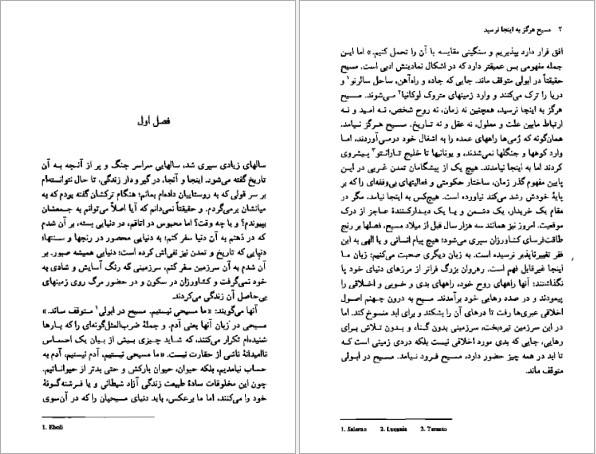 فصل اول
سالهای زیادی سپری شد، سالهایی سراسر جنگ و پر از آنچه به آن
تاریخ گفته می‌شود. اینجا و آنجا، در گیرودار زندگی، تا حال نتوانسته‌ام
بر سر قولی که به روستاییان داده‌ام بمانم؛ هنگام ترکشان گفته بودم که به
میانشان برمی‌گردم. و حقیقتاً نمی‌دانم که آیا اصلاً می‌توانم به جمعشان
بپیوندم؟ و یا چه وقت؟ اما محبوس در اتاقم، در دنیایی بسته، بر آن شدم
که در ذهنم به آن دنیا سفر کنم، به دنیایی محصور در رنجها و سنتها؛
دنیایی که تاریخ و تمدن نیز نفی‌اش کرده است؛ دنیایی همیشه صبور. بر
آن شدم به آن سرزمین سفر کنم، سرزمینی که رنگ آسایش و شادی به
خود نمی‌گرفت و کشاورزان در سکون و در حضور مرگ روی زمینهای
بی‌حاصل آن زندگی می‌کردند.
آنها می‌گویند: «ما مسیحی نیستیم، مسیح در ابولی۱ متوقف ماند.»
مسیحی در زبان آنها یعنی آدم. و جملهٔ ضرب‌المثل‌گونه‌ای را که بارها
شنیده‌ام تکرار می‌کنند، که شاید چیزی بیش از بیان یک احساس
ناامیدانهٔ ناشی از حقارت نیست. «ما مسیحی نیستیم، آدم نیستیم، آدم به
حساب نیامدیم، بلکه حیوان، حیوان بارکش، و حتی بدتر از حیواناتیم.
چون این مخلوقات سادهٔ طبیعت زندگی آزاد شیطانی و یا فرشته‌گونهٔ
خود را می‌کنند، اما ما برعکس، باید دنیای مسیحیان را که در آن‌سوی
1. Eboli
۲ مسیح هرگز به اینجا نرسید
افق قرار دارد بپذیریم و سنگینی مقایسه با آن را تحمل کنیم.» اما این
جمله مفهومی بس عمیقتر دارد که در اشکال نمادینش ادبی است. مسیح
حقیقتاً در ابولی متوقف ماند. جایی که جاده و راه‌آهن، ساحل سالرنو۱ و
دریا را ترک می‌کنند و وارد زمینهای متروک لوکانیا۲ می‌شوند. مسیح
هرگز به اینجا نرسید، همچنین نه زمان، نه روح شخصی، نه امید و نه
ارتباط مابین علت و معلول، نه عقل و نه تاریخ. مسیح هرگز نیامد.
همان‌گونه که رمی‌ها راههای عمده را به اشغال خود درمی‌آوردند، اما
وارد کوهها و جنگلها نمی‌شدند، و یونانیها تا خلیج تارانتو۳ پیشروی
کردند اما به اینجا نیامدند. هیچ یک از پیشگامان تمدن غربی در این
پایین مفهوم گذر زمان، ساختار حکومتی و فعالیتهای بی‌وقفه‌ای را که بر
پایهٔ خودش رشد می‌کند نیاورده است. هیچ‌کس به اینجا نیامد، مگر در
مقام یک خریدار، یک دشمن و یا یک دیدارکنندهٔ عاجز از درک
موقعیت. امروز نیز همانند سه هزار سال قبل از میلاد مسیح، فصلها بر رنج
طاقت‌فرسای کشاورزان سپری می‌شود؛ هیچ پیام انسانی و یا الهی به این
فقر تغییرناپذیر نرسیده است. به زبان دیگری صحبت می‌کنیم: زبان ما
اینجا غیرقابل فهم است. رهروان بزرگ فراتر از مرزهای دنیای خود پا
نگذاشتند؛ آنها راههای روح خود، راههای بدی و خوبی و اخلاقی را
پیمودند و در صدد رهایی خود برآمدند. مسیح به درون جهنم اصول
اخلاقی عبری‌ها رفت تا درهای آن را بشکند و برای ابد منسوخ کند. اما
در این سرزمین تیره‌بخت، سرزمینی بدون گناه، و بدون تلاشی برای
رهایی، جایی که بدی مورد اخلاقی نیست بلکه دردی زمینی است که
تا ابد در همه چیز حضور دارد، مسیح فرود نیامد. مسیح در ابولی
متوقف ماند.
1. Salerno 2. Lucania 3. Taranto